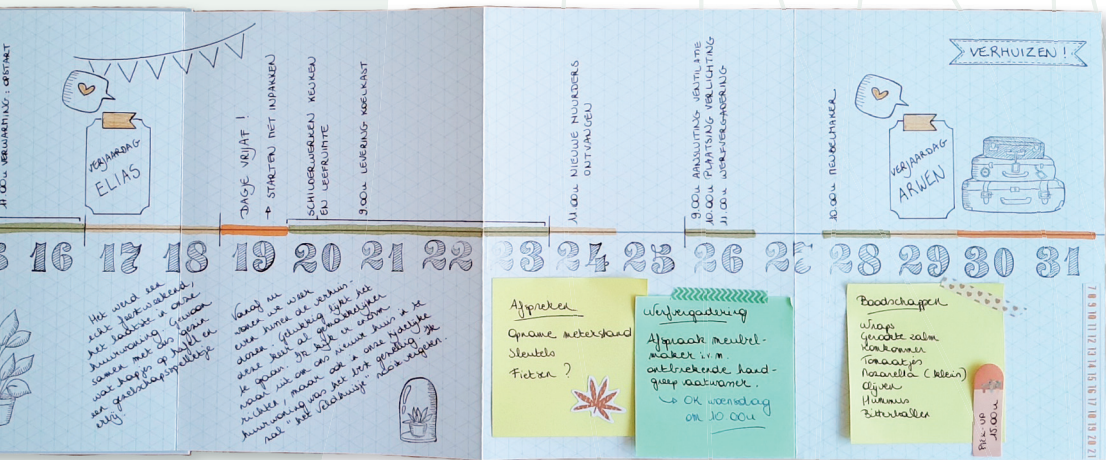 11.00u VERWARMING: OPSTART
VERJAARDAG
ELIAS
DAGJE VRIJAF!
→ STARTEN MET INPAKKEN
SCHILDERWERKEN KEUKEN
EN LEEFRUIMTE
9.00u LEVERING KOELKAST
11.00u NIEUWE HUURDERS
ONTVANGEN
9.00u AANSLUITING VENTILATIE
10.00u PLAATSING VERLICHTING
11.00u WERFVERGADERING
10.00u MEUBELMAKER
VERJAARDAG
ARWEN
VERHUIZEN!
16 17 18 19 20 21 22 23 24 25 26 27 28 29 30 31
Het werd een
echt feestweekend,
het laatste in onze
huurwoning. Gewoon
samen met ons gezin
wat hapjes op tafel en
een gezelschapsspelletje
erbij
Vanaf nu
staan we weer
even binnen de verhuis-
dozen. Gelukkig lijkt het
deze keer al gemakkelijker
te gaan. Ik kijk er enorm
naar uit om ons nieuwe huis in te
richten, maar ook in onze tijdelijke
huurwoning was het best gezellig. Ik
zal "het veldhuisje"
Afspreken
Opname meterstand
Sleutels
Fietsen ?
Werfvergadering
Afspraak meubel-
maker i.v.m.
ontbrekende hand-
greep vaatwasser.
↳ OK woensdag
om 10.00u
Boodschappen
Wraps
Gerookte zalm
Komkommer
Tomaatjes
Mozarella (klein)
Olijven
Hummus
Bitterballen
PICK-UP
15.00u
7 8 9 10 11 12 13 14 15 16 17 18 19 20 21